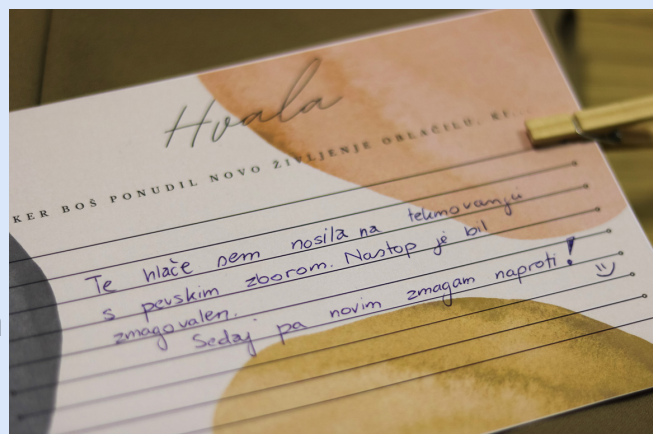 Hvala
KER BOŠ PONUDIL NOVO ŽIVLJENJE OBLAČILU, KI...
Te hlače sem nosila na tekmovanju
s pevskim zborom. Nastop je bil
zmagovalen.
Sedaj pa novim zmagam naproti!